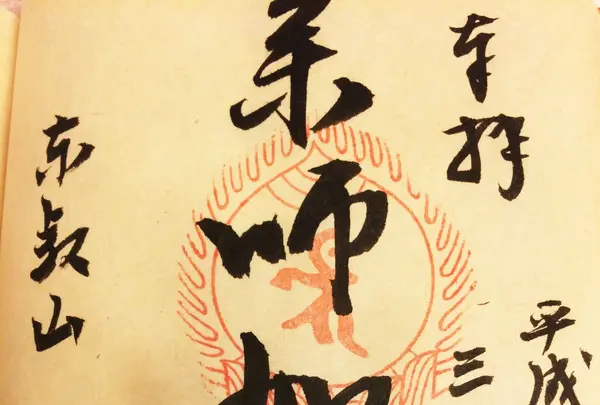 奉拝
平成
三
薬師如
東叡山